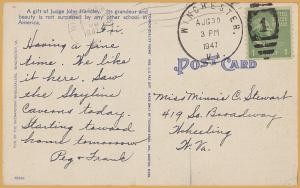 A gift of Judge John Handley. Its grandeur and
beauty is not surpassed by any other school in
America.
Fri.
Having a fine
time. We like
it here. Saw
the Skyline
Caverns today.
Starting toward
home tomorrow
Peg & Frank
WINCHESTER,
AUG 30
3 PM
1947
1
POST CARD
Miss Minnie C. Stewart
419 So. Broadway
Wheeling
W. Va.